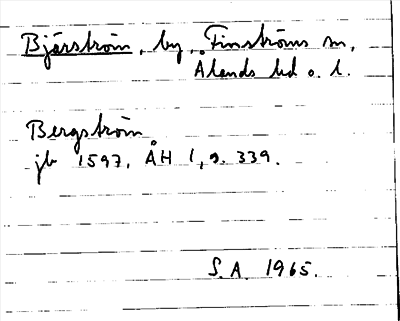 Bjärström, by, Finströms sn,
Ålands hd o. l.
Bergström
jb 1597. ÅH 1, s. 339.
S.A. 1965.